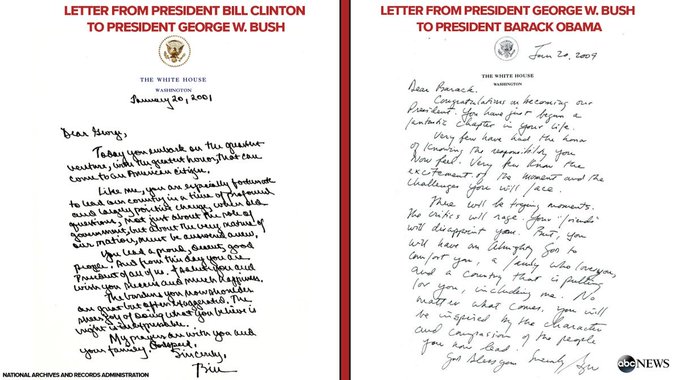 LETTER FROM PRESIDENT BILL CLINTON
TO PRESIDENT GEORGE W. BUSH
THE WHITE HOUSE
WASHINGTON
January 20, 2001
Dear George,
Today you embark on the greatest
venture, with the greatest honor, that can
come to an American citizen.
Like me, you are especially fortunate
to lead our country in a time of profound
and largely positive change, when old
questions, not just about the role of
government, but about the very nature of
our nation, must be answered anew.
You lead a proud, decent, good
people. And from this day you are
President of all of us. I salute you and
wish you success and much happiness.
The burdens you now shoulder
are great but often exaggerated. The
sheer joy of doing what you believe is
right is inexpressible.
My prayers are with you and
your family. Godspeed.
Sincerely,
Bill
NATIONAL ARCHIVES AND RECORDS ADMINISTRATION
LETTER FROM PRESIDENT GEORGE W. BUSH
TO PRESIDENT BARACK OBAMA
Jan 20, 2009
THE WHITE HOUSE
WASHINGTON
Dear Barack,
Congratulations on becoming our
President. You have just begun a
fantastic chapter in your life.
Very few have had the honor
of knowing the responsibility you
now feel. Very few know the
excitement of the moment and the
challenges you will face.
There will be trying moments.
The critics will rage. Your "friends"
will disappoint you. But, you
will have an Almighty God to
comfort you, a family who loves you,
and a country that is pulling
for you, including me. No
matter what comes, you will
be inspired by the character
and compassion of the people
you now lead.
God bless you. Sincerely,
abc NEWS